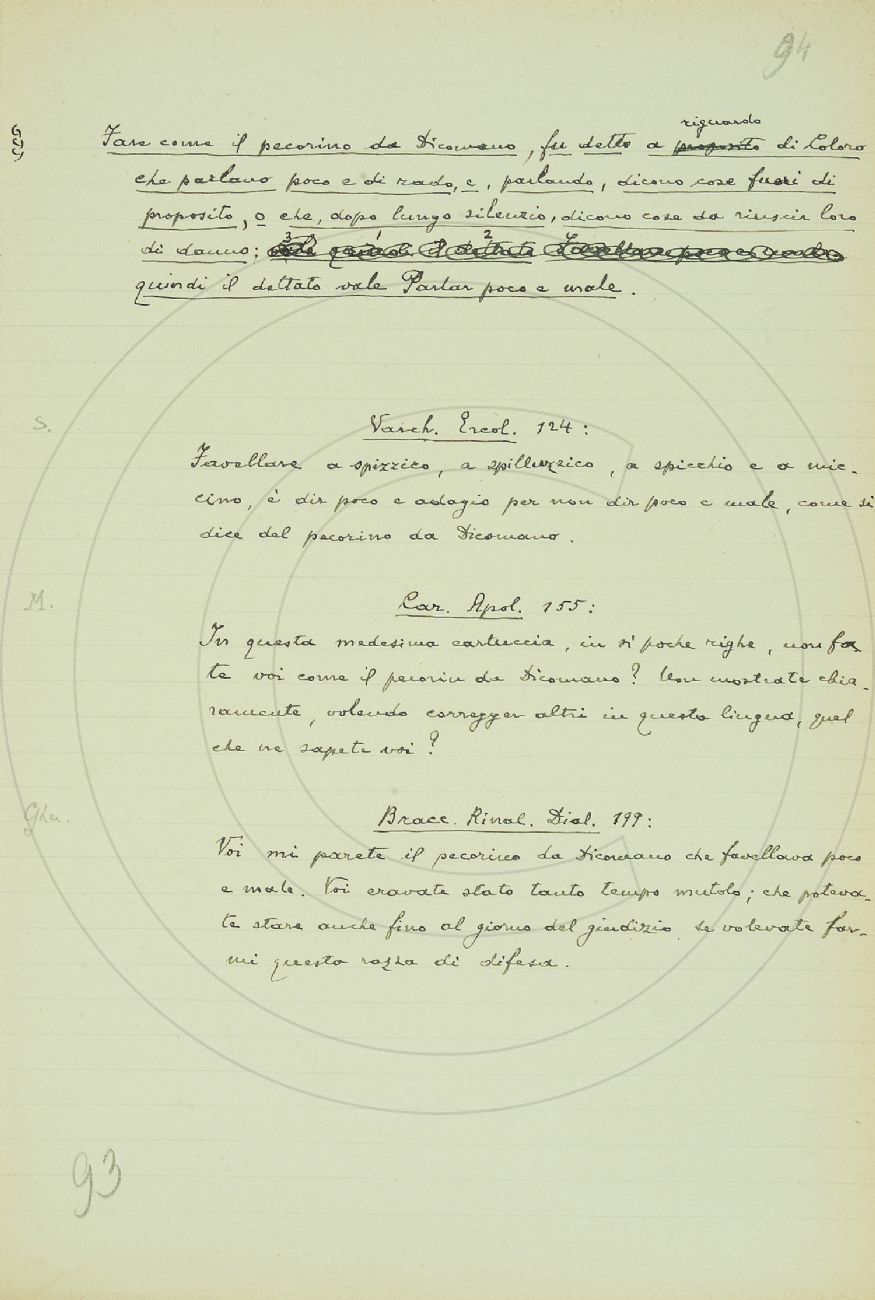 94
Fare come il pecorino da Dicomano, fu detto a proposito riguardo di Coloro
che parlano poco e di rado, e, parlando, dicono cose fuori di
proposito, o che, dopo lungo silenzio, dicono cose da riuscir loro
di danno: 3 vale 1 quindi il 2 dettato Favellare poco e male
quindi il dettato vale Parlar poco e male.
S.
Varch. Ercol. 124:
Favellare a spizzico, a spilluzzico, a spicchio e a mic-
cino, è dir poco e adagio per non dir poco e male, come si
dice del pecorino da Dicomano.
M.
Car. Apol. 155:
In questa medesima cartuccia, in sì poche righe, non fa-
te voi come il pecorin da Dicomano? Non mostrate chia-
ramente, volendo corregger altri in questa lingua, quel
che ne sapete voi?
Gher.
Bracc. Rinal. Dial. 199:
Voi mi parete il pecorino da Dicomano che favellava poco
e male. Voi eravate stato tanto tempo mutolo; che poteva-
te stare anche fino al giorno del giudizio se volevate far-
mi questa razza di difesa.
93